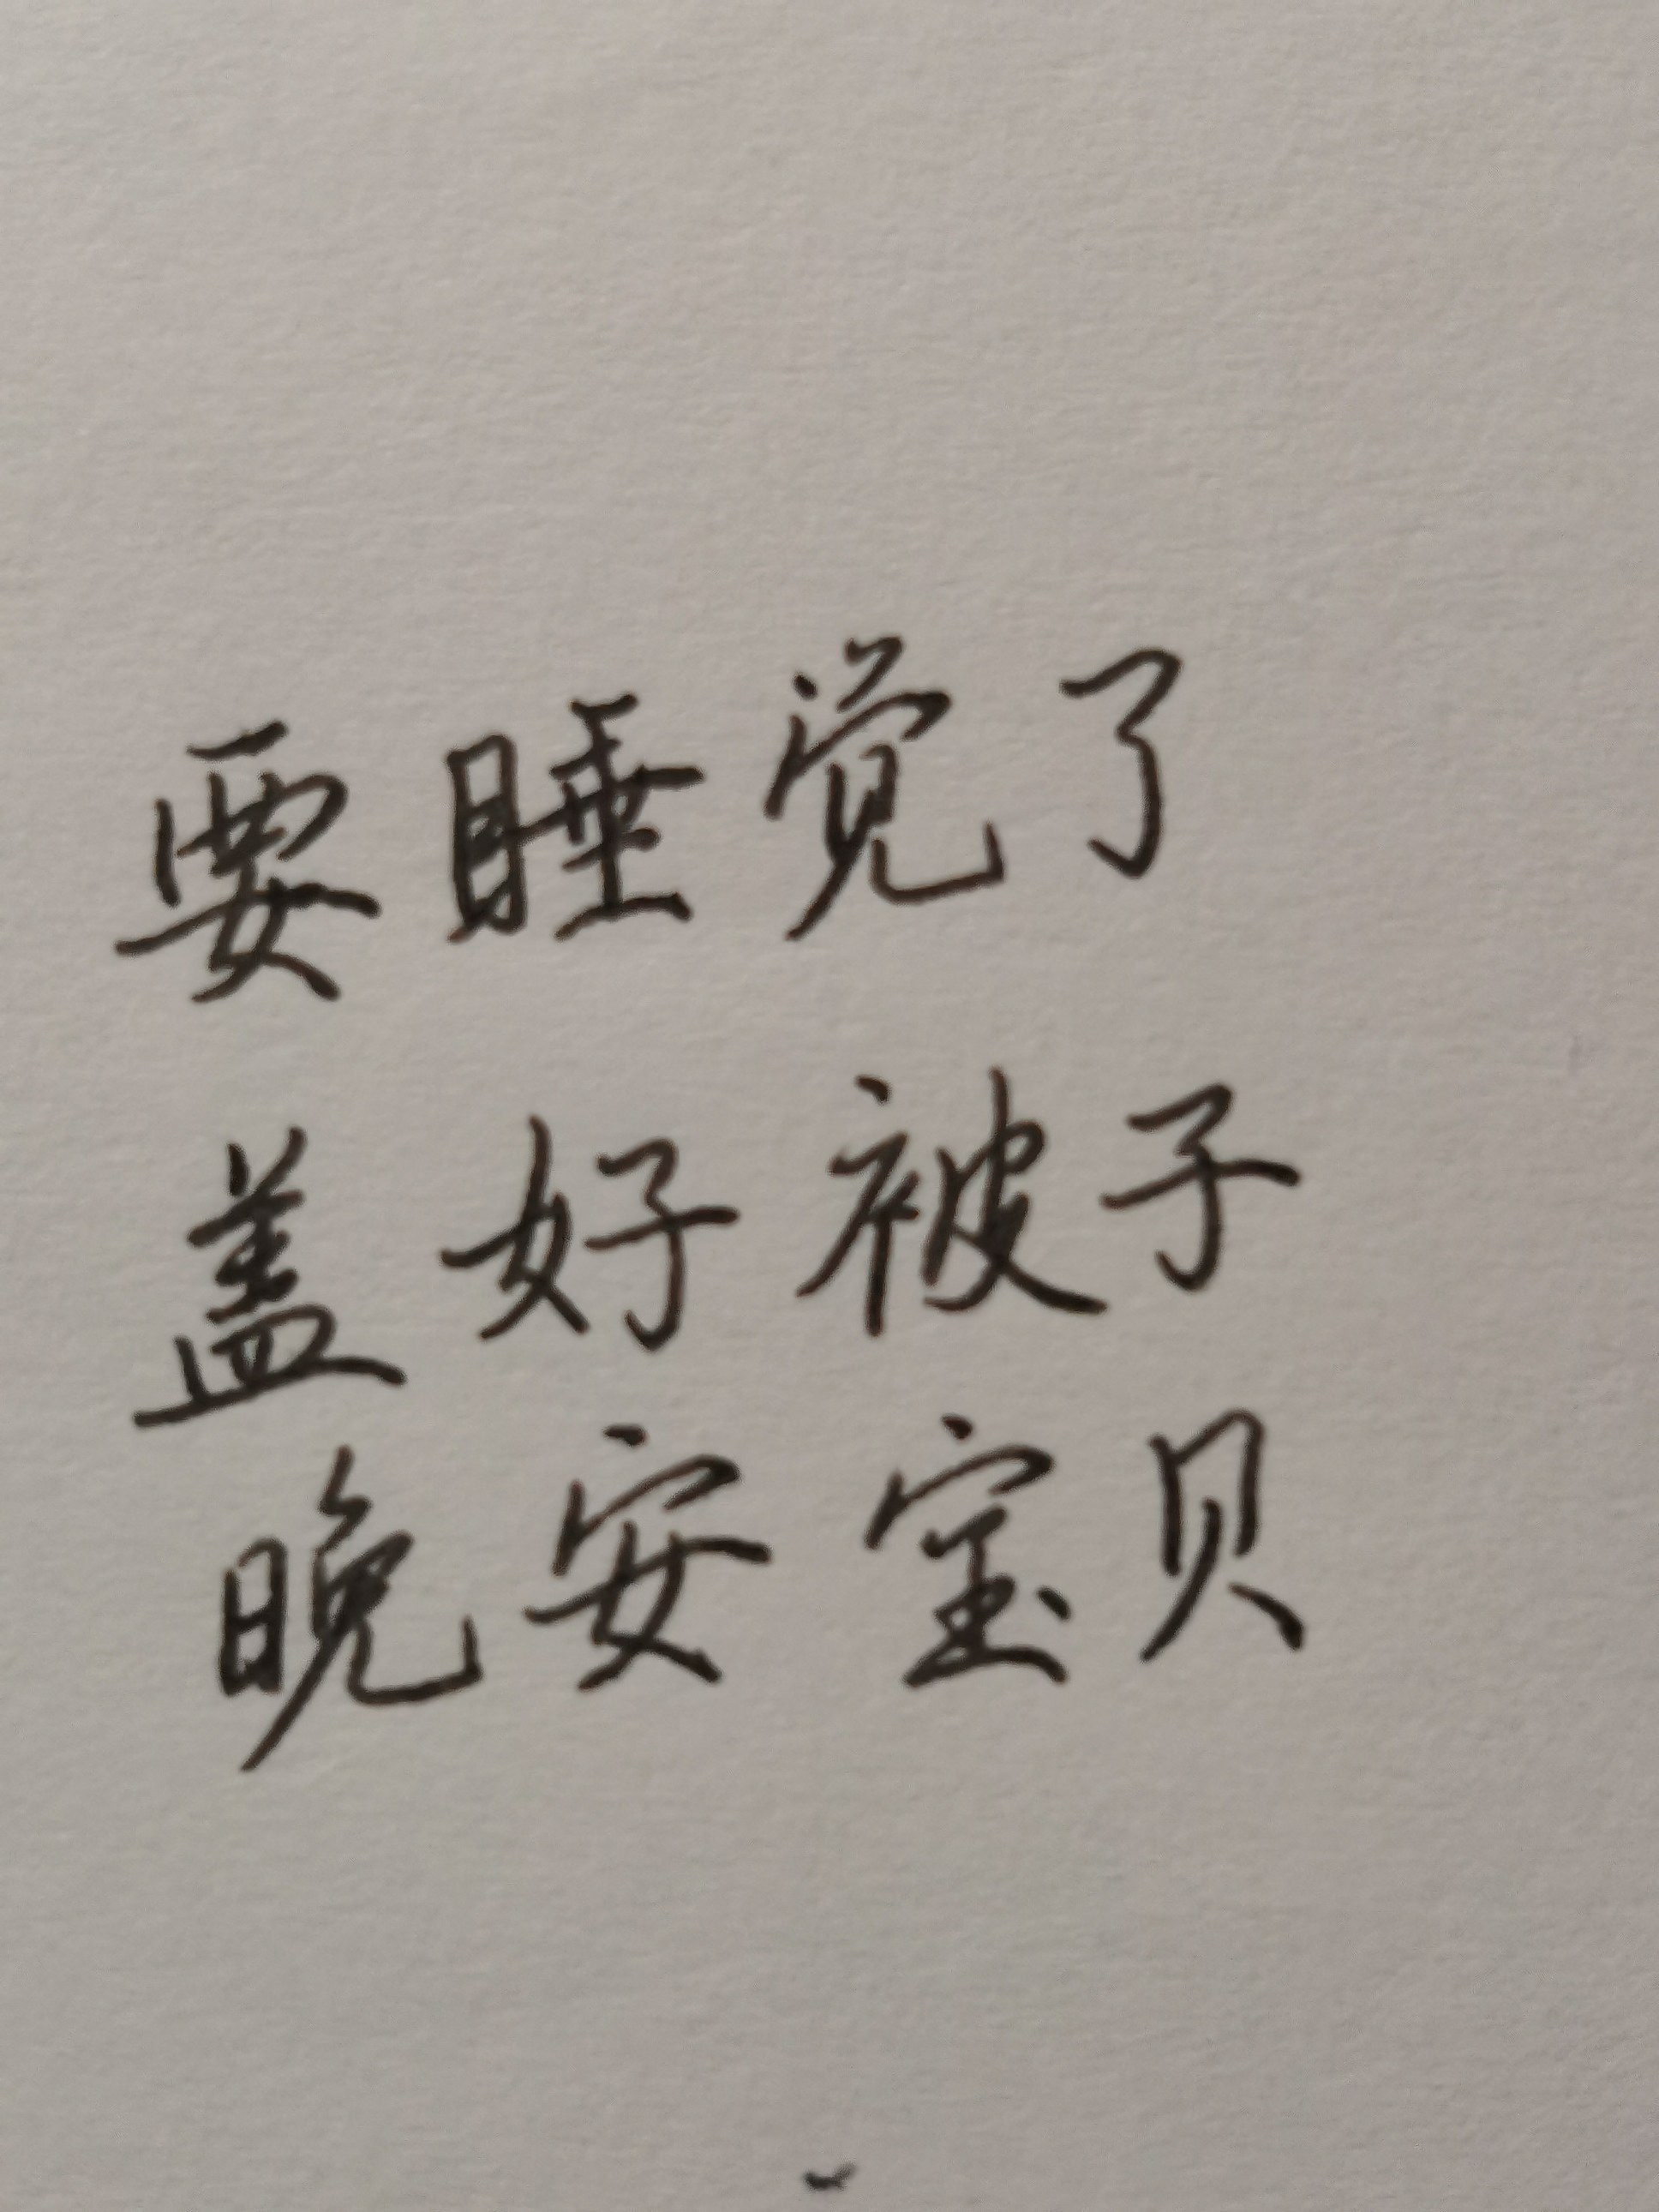 要睡觉了
盖好被子
晚安宝贝